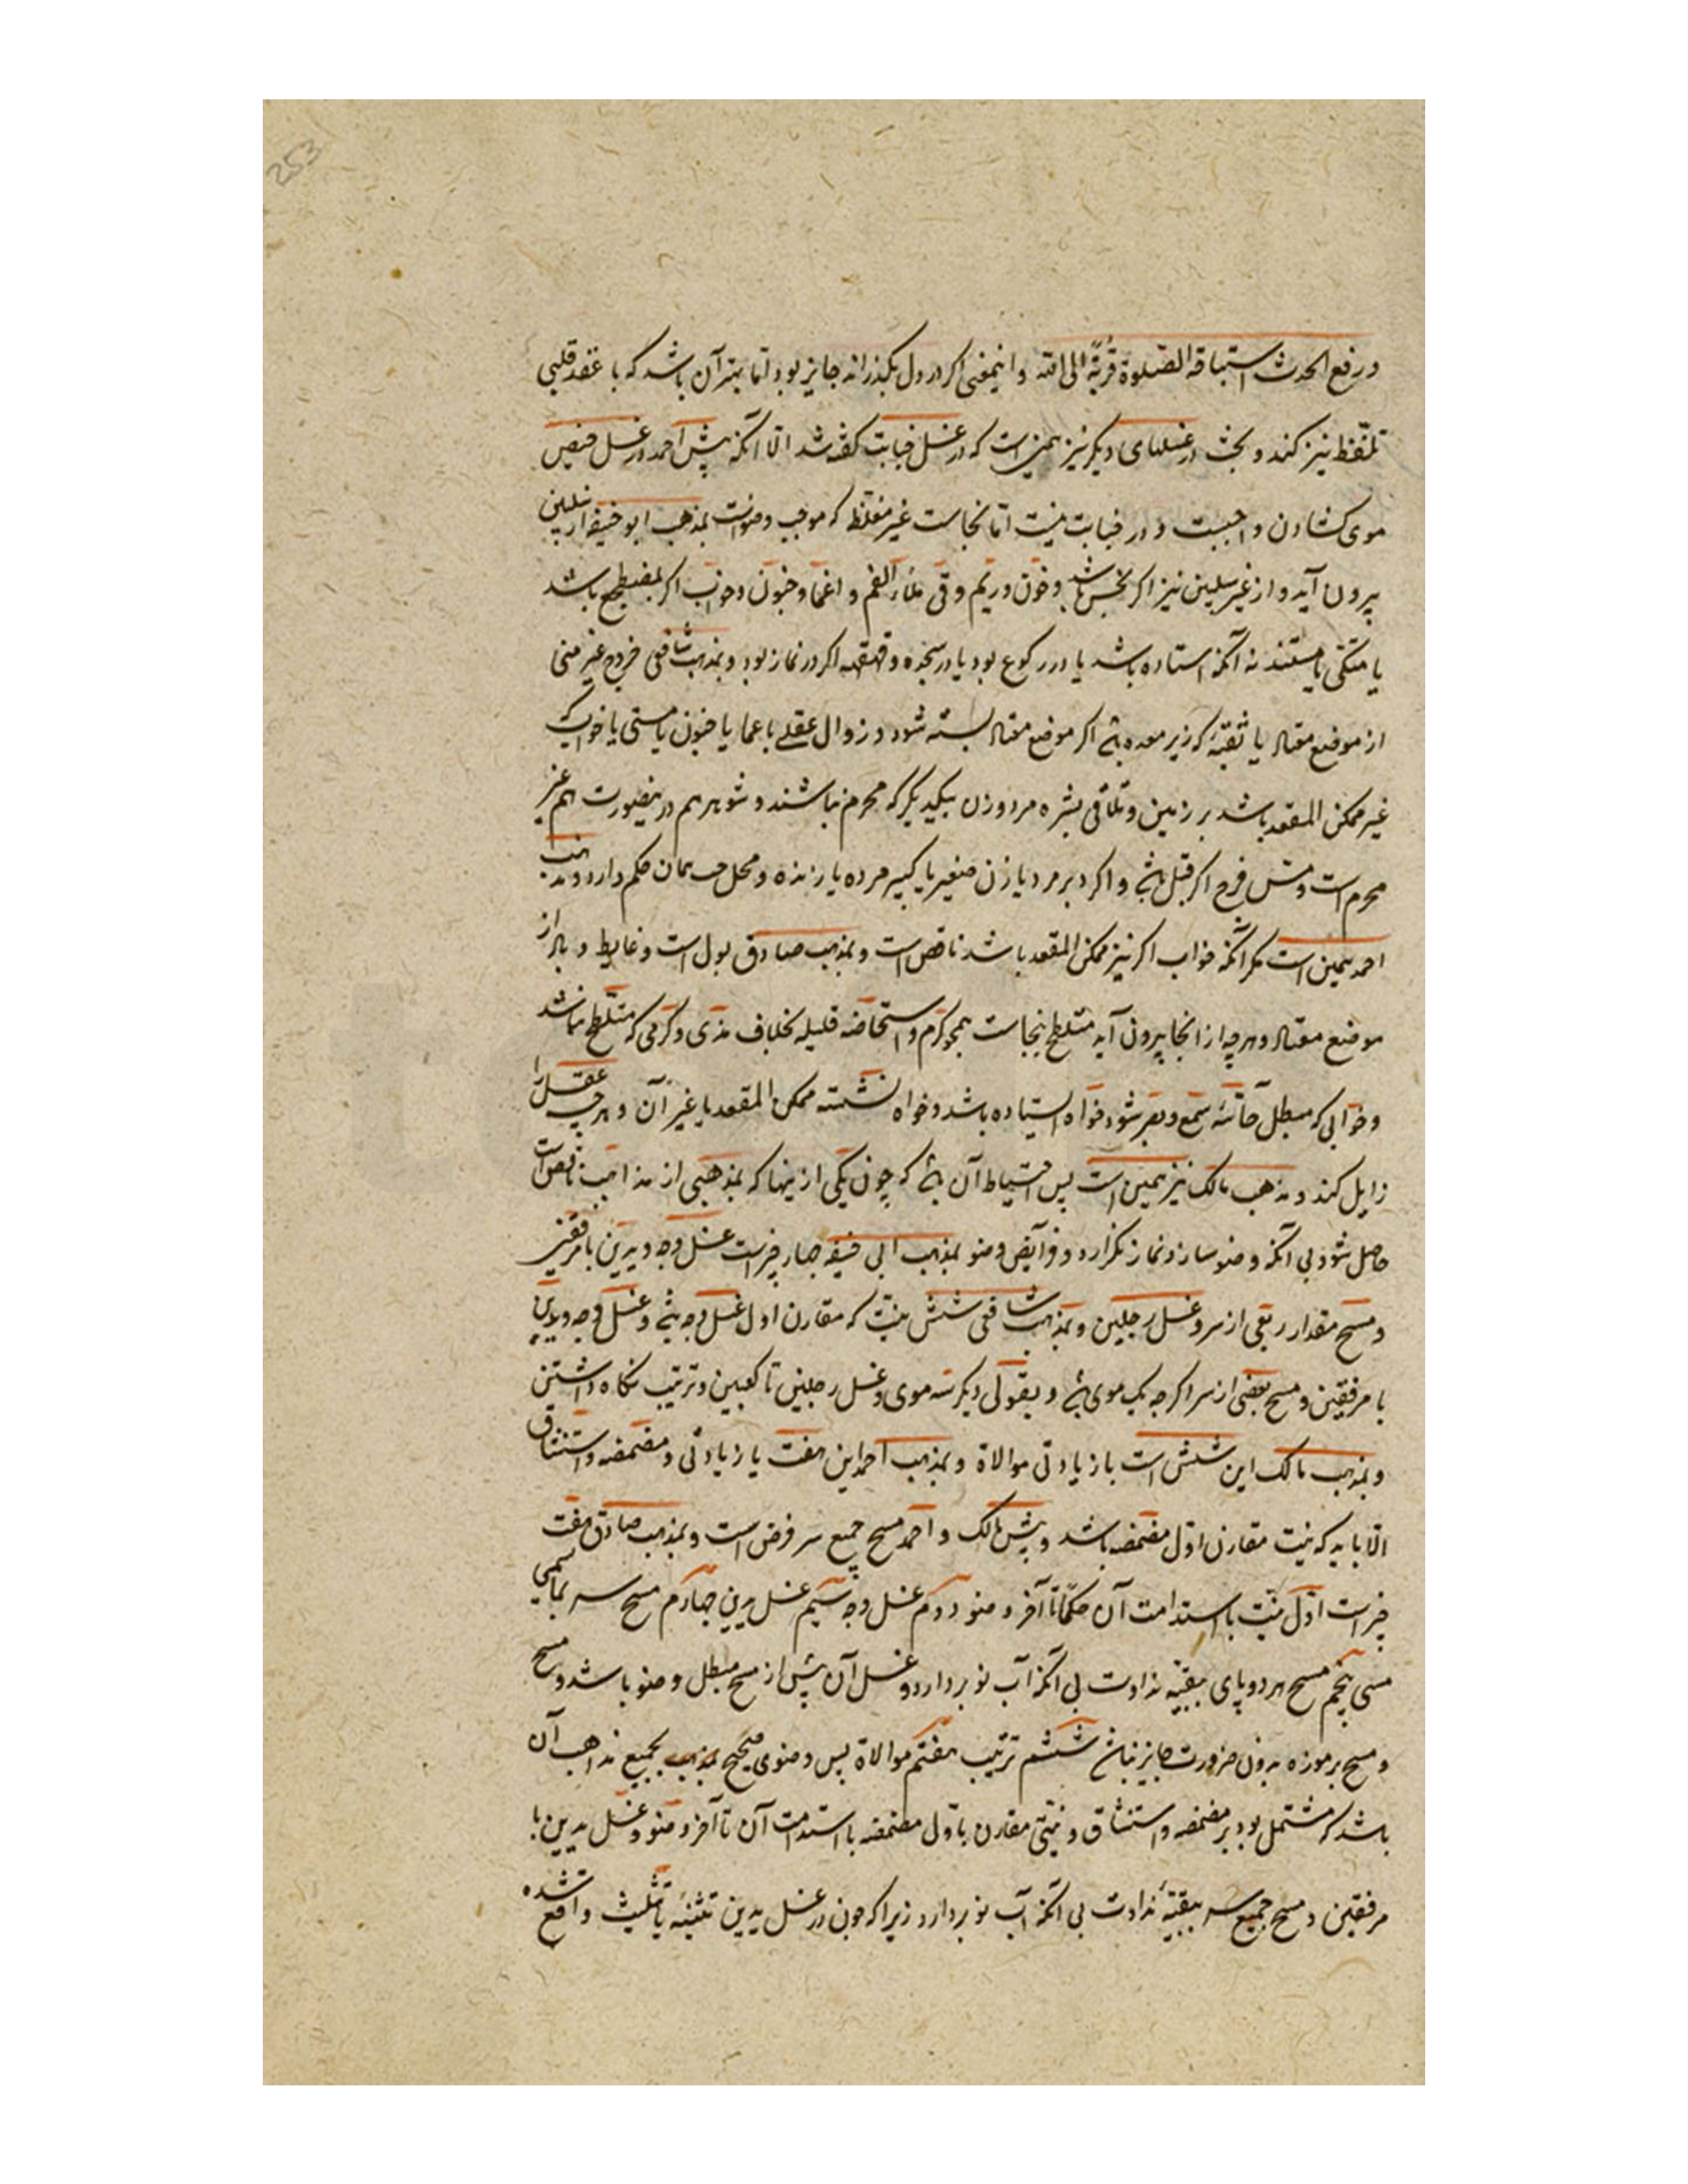 253
و رفع الحدث استباقه الصلوة قربة الی الله و اینمعنی اکر در دل بکذراند جایز بود اما بهتر آن باشد که با عقد قلبی
تلفظ نیز کند و بحث در غسلهای دیکر نیز همین است که در غسل جنابت کفته شد الا آنکه پیش احمد در غسل حیض
موی کشادن واجبست و در جنابت نیست اما نجاست غیر مغلظ که موجب وضوست بمذهب ابو حنیفه از سبیلین
بیرون آید و از غیر سبیلین نیز اکر نجس باشد و خون و ریم و قی ملاء الفم و اغما و جنون و خواب اکر مضطجع باشد
یا متکی یا مستند نه آنکه استاده باشد یا در رکوع بود یا در سجده و قهقهه اکر در نماز بود و بمذهب شافعی خروج غیر منی
از موضع معتاد یا ثقبه که زیر معده باشد اکر موضع معتاد بسته شود و زوال عقل باغما یا جنون یا مستی یا خواب که
غیر ممکن المقعد باشد بر زمین و تلاقی بشره مرد و زن بیکدیکر که محرم نباشند و شوهر هم درینصورت هم غیر
محرم است و مس فرج اکر قبل باشد و اکر دبر مرد یا زن صغیر یا کبیر مرده یا زنده و محل جب همان حکم دارد و مذهب
احمد همین است مکر آنکه خواب اکر نیز ممکن المقعد باشد ناقض است و بمذهب صادق بول است و غایط و باد از
موضع معتاد و هرچه از انجا بیرون آید متلطخ بنجاست همچو کرم و استحاضه قلیله بخلاف مذی و کرمی که متلطخ نباشد
و خوابی که مبطل حاسه سمع و بصر شود خواه استاده باشد و خواه نشسته ممکن المقعد یا غیر آن و هرچه عقل را
زایل کند و مذهب مالک نیز همین است پس احتیاط آن باشد که چون یکی از ینها که بمذهبی از مذاهب ناقض است
حاصل شود بی آنکه وضو سازد نماز نکزارد و فرایض وضو بمذهب ابی حنیفه چهار چیزست غسل وجه و یدین با مرفقین
و مسح مقدار ربعی از سر و غسل رجلین و بمذهب شافعی شش نیت که مقارن اول غسل وجه باشد و غسل وجه و یدین
با مرفقین و مسح بعضی از سر اکرچه یک موی باشد و بقولی دیکر سه موی و غسل رجلین تا کعبین و ترتیب نکاه داشتن
و بمذهب مالک این شش است با زیادتی موالاة و بمذهب احمد این هفت با زیادتی و مضمضه و استنشاق
الا باید که نیت مقارن اول مضمضه باشد و پیش مالک و احمد مسح جمیع سر فرض است و بمذهب صادق هفت
چیز است اول نیت با استدامت آن حکما تا آخر وضو دوم غسل وجه سیم غسل یدین چهارم مسح سر بما سمی
مسی پنجم مسح هر دو پای ببقیه نداوت بی آنکه آب نو بردارد و غسل آن پیش از مسح مبطل وضو باشد و مسح
و مسح بر موزه بدون ضرورت جایز نباشد ششم ترتیب هفتم موالاة پس وضوی صحیح بمذهب بجمیع مذاهب آن
باشد که مشتمل بود بر مضمضه و استنشاق و نیتی مقارن باول مضمضه با استدامت آن تا آخر وضو و غسل یدین با
مرفقین و مسح جمیع سر ببقیه نداوت بی آنکه آب نو بردارد زیرا که چون در غسل یدین تثنیه یا تثلیث واقع شده